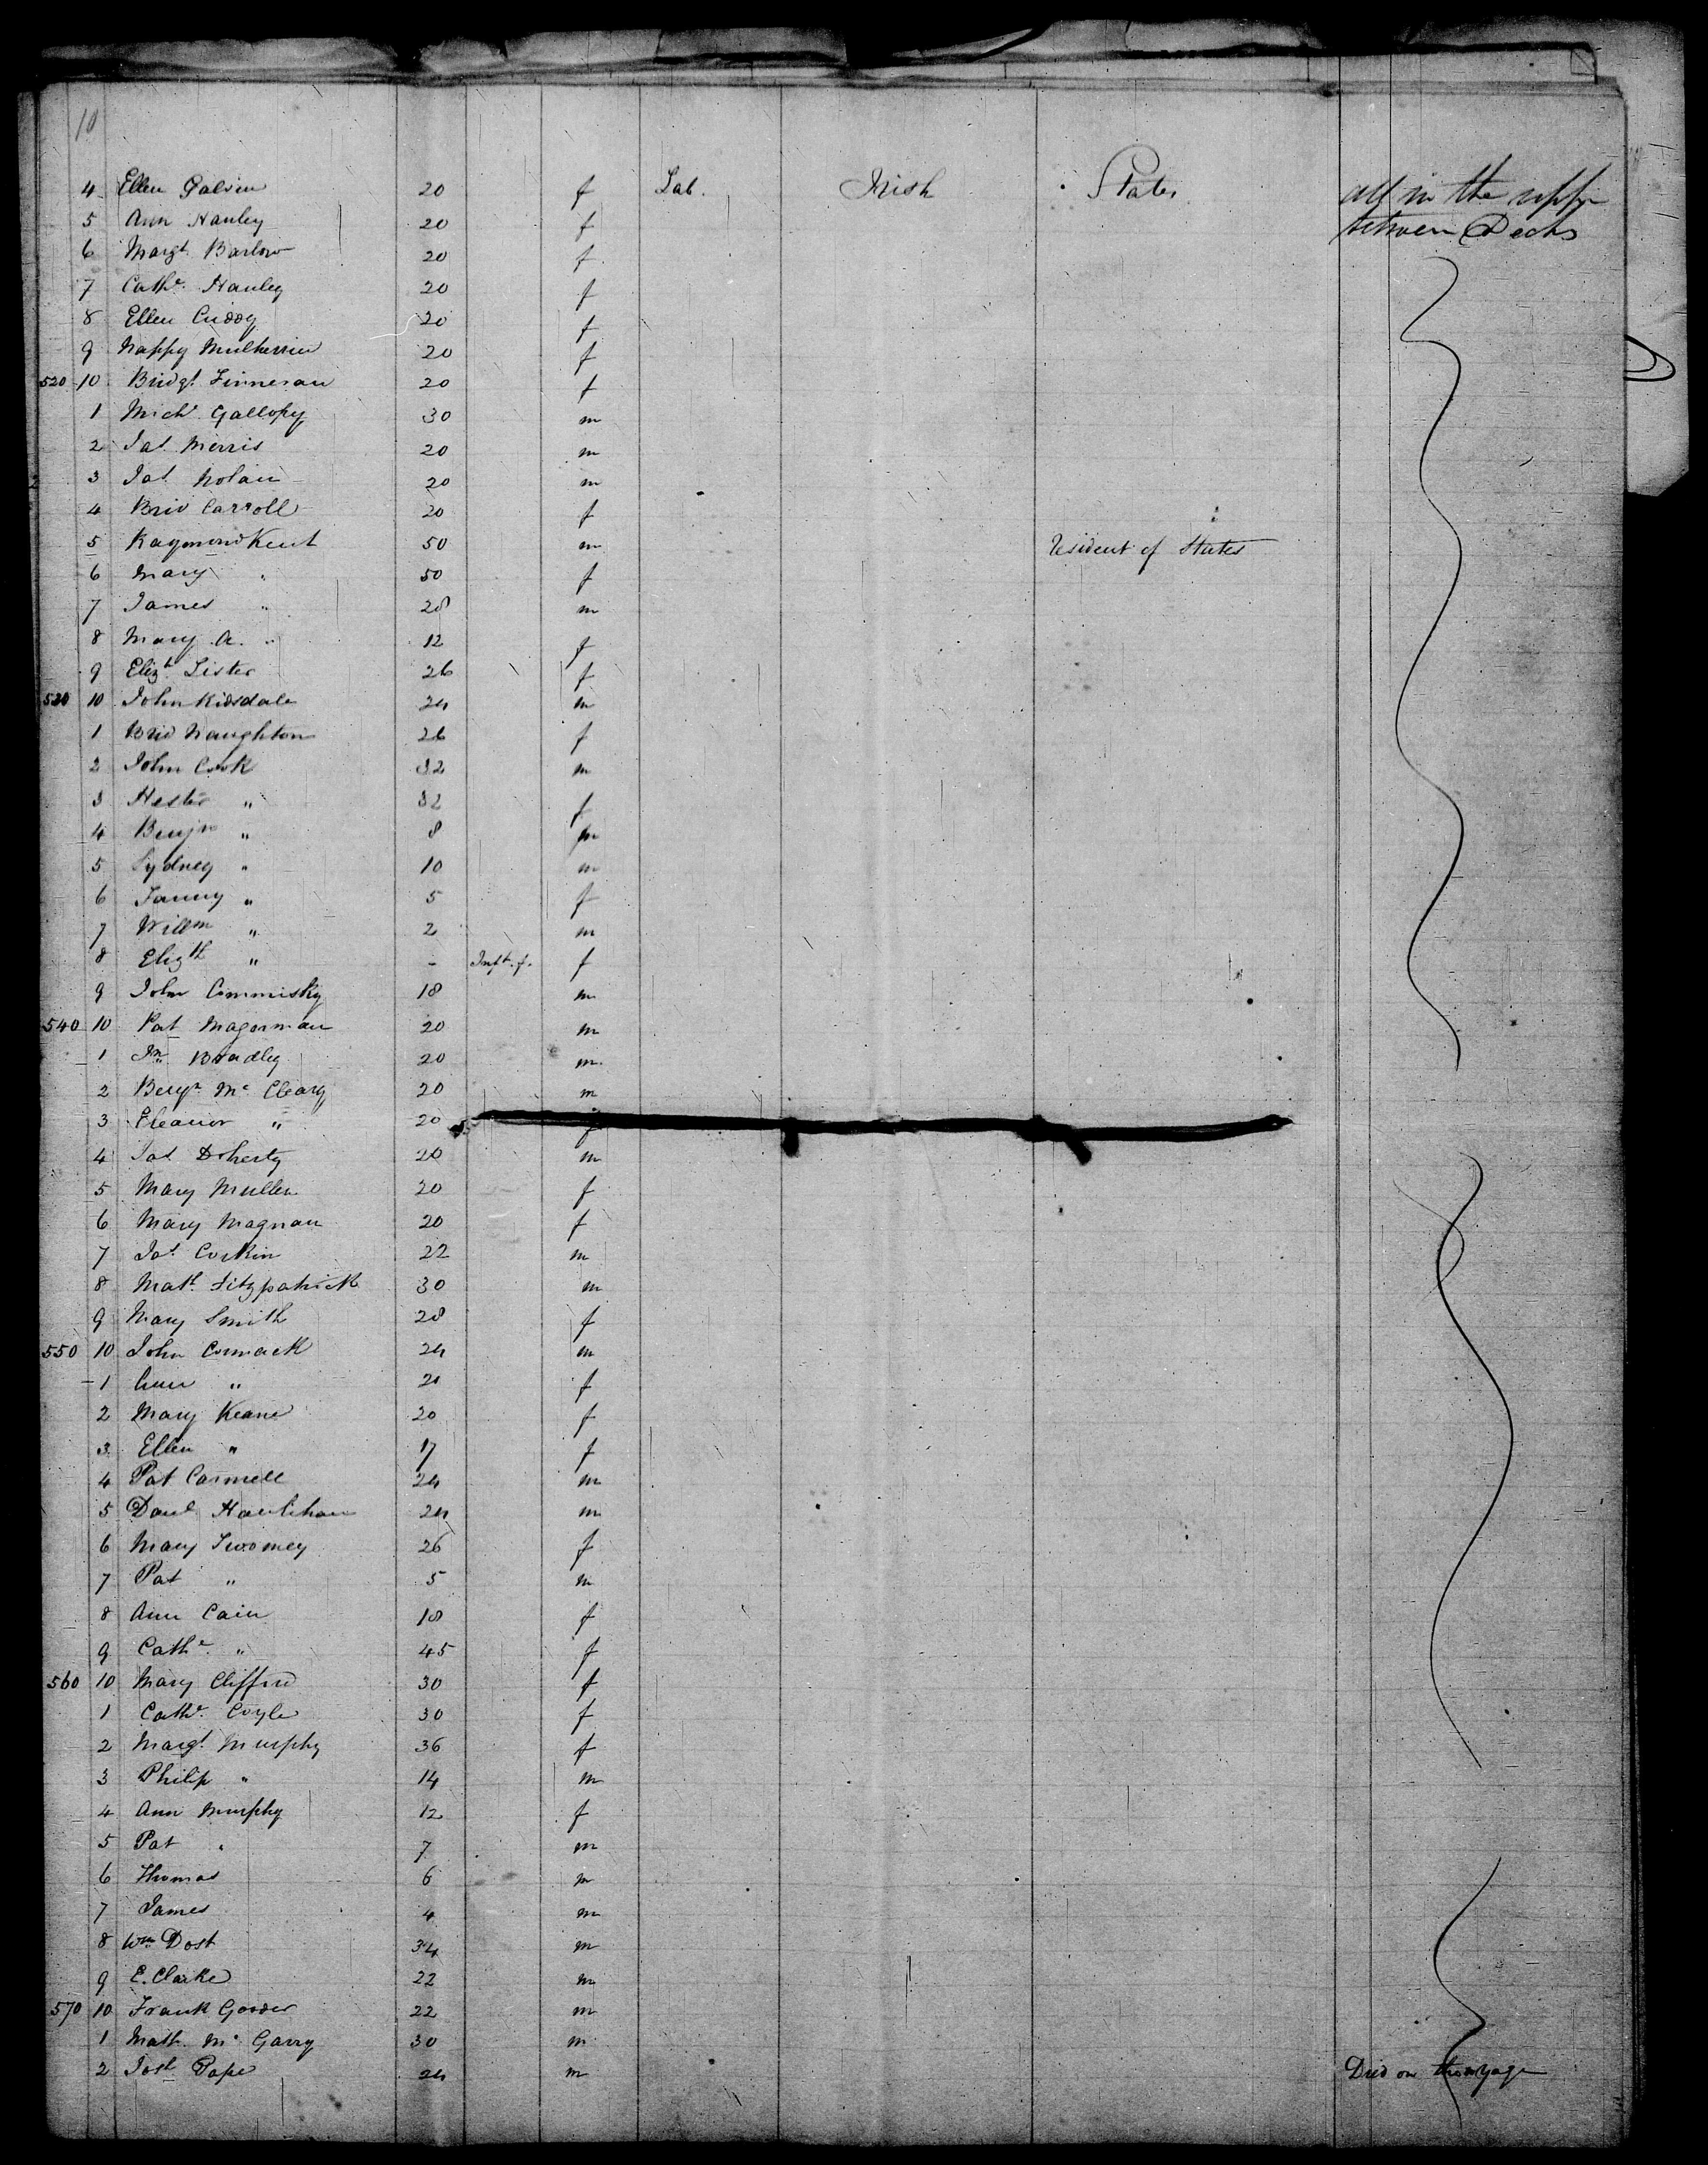 10
4 Ellen Galvin 20 f Lab. Irish States all in the upper
5 Ann Hanley 20 f between Decks
6 Margt. Barlow 20 f
7 Cathe. Hanley 20 f
8 Ellen Cuddy 20 f
9 Nappy Mulherrin 20 f
520 10 Bridgt. Finneran 20 f
1 Michl. Gallopy 30 m
2 Jas. Merris 20 m
3 Jas. Nolan 20 m
4 Brid Carroll 20 f
5 Raymond Kent 50 m resident of States
6 Mary " 50 f
7 James " 28 m
8 Mary A. " 12 f
9 Elizth Lister 26 f
530 10 John Ridsdale 24 m
1 Brid Naughton 26 f
2 John Cook 32 m
3 Hester " 32 f
4 Benjn " 8 m
5 Sydney " 10 m
6 Fanny " 5 f
7 Willm " 2 m
8 Elizth " - Inft. f. f
9 John Commisky 18 m
540 10 Pat Magorman 20 m
1 Jn. Bradley 20 m
2 Benjn. Mc Cleary 20 m
3 Eleanor " 20 f
4 Jas. Doherty 20 m
5 Mary Mullen 20 f
6 Mary Magnan 20 f
7 Jas. Corkin 22 m
8 Math. Fitzpatrick 30 m
9 Mary Smith 28 f
550 10 John Cormack 24 m
1 " 20 f
2 Mary Keane 20 f
3 Ellen " 17 f
4 Pat Cormell 24 m
5 Danl Houlihan 24 m
6 Mary Twomey 26 f
7 Pat " 5 m
8 Ann Cain 18 f
9 Cathe. " 45 f
560 10 Mary Clifford 30 f
1 Cathe. Coyle 30 f
2 Margt. Murphy 36 f
3 Philip " 14 m
4 Ann Murphy 12 f
5 Pat " 7 m
6 Thomas 6 m
7 James 4 m
8 Wm Dost 34 m
9 E. Clarke 22 m
570 10 Frank Gorder 22 m
1 Math. Mc Garry 30 m
2 Josh. Pape 24 m Died on the voyage